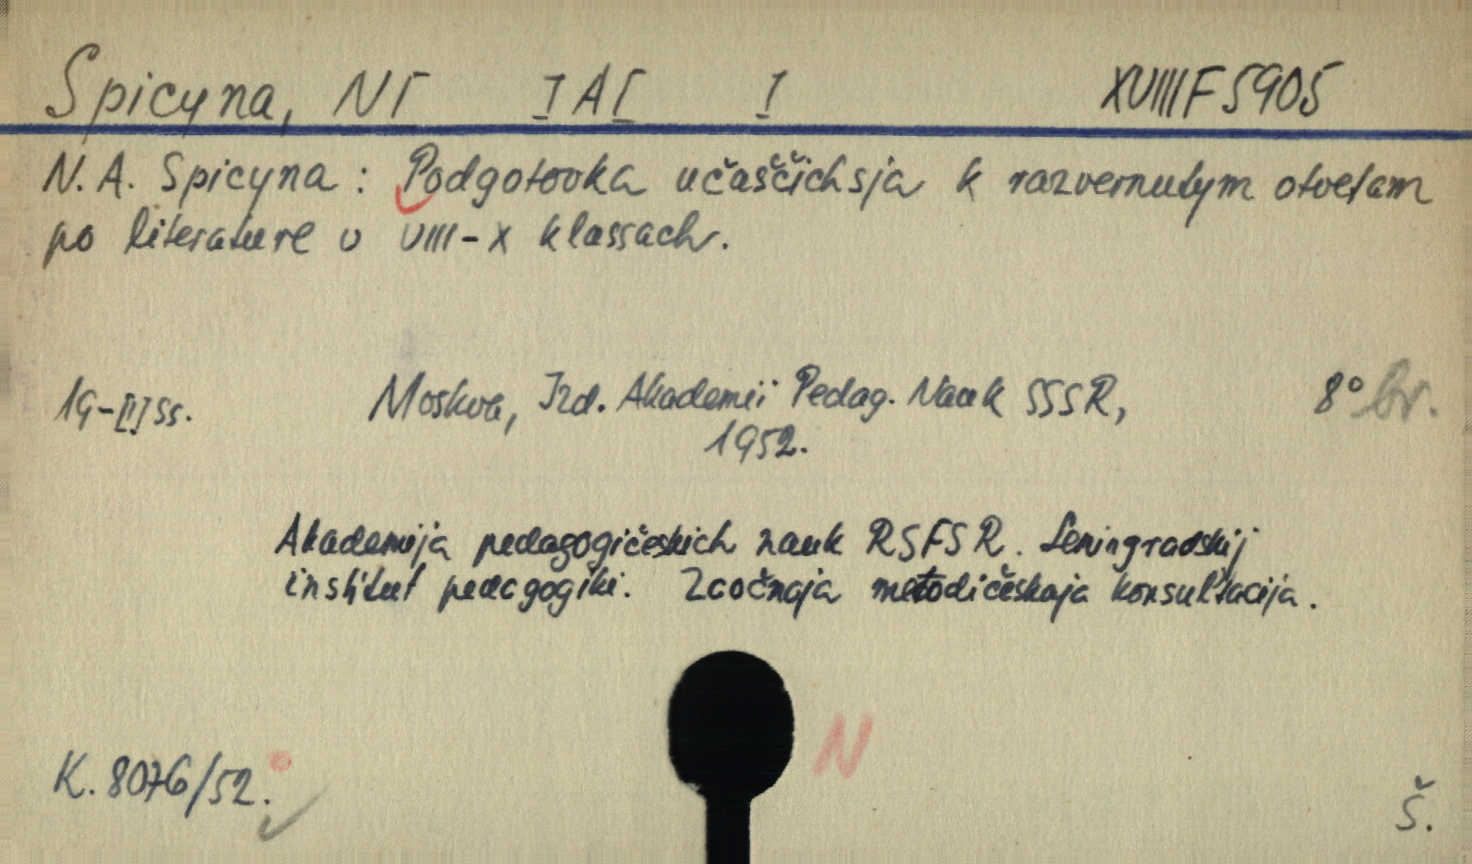 Spicyna, NI I A I I XVIII F 5905
N. A. Spicyna : Podgotovka učaščichsja k razvernutym otvetam
po literature v VIII-X klassach.
19-[I] ss. Moskva, Izd. Akademii Pedag. Nauk SSSR, 8° br.
1952.
Akademija pedagogičeskich nauk RSFSR. Leningradskij
institut pedagogiki. Zaočnaja metodičeskaja konsultacija.
N
K. 8076/52.
Š.